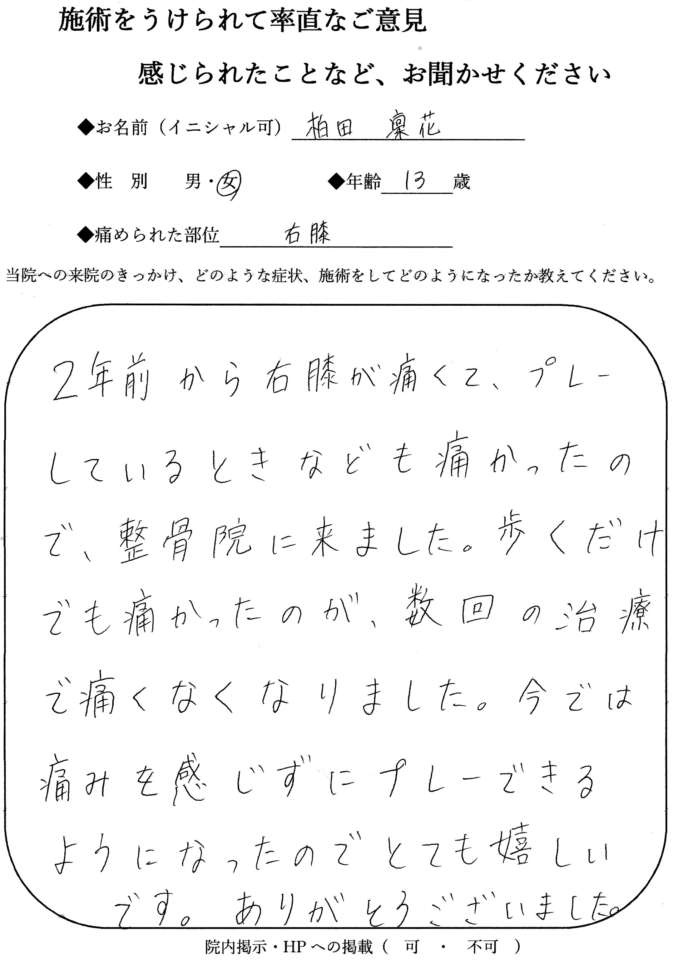 施術をうけられて率直なご意見
感じられたことなど、お聞かせください
◆お名前（イニシャル可） 柏田 凜花
◆性 別 男・女 ◆年齢 13 歳
◆痛められた部位 右膝
当院への来院のきっかけ、どのような症状、施術をしてどのようになったか教えてください。
2年前から右膝が痛くて、プレー
しているときなども痛かったの
で、整骨院に来ました。歩くだけ
でも痛かったのが、数回の治療
で痛くなくなりました。今では
痛みを感じずにプレーできる
ようになったのでとても嬉しい
です。ありがとうございました。
院内掲示・HPへの掲載（ 可 ・ 不可 ）